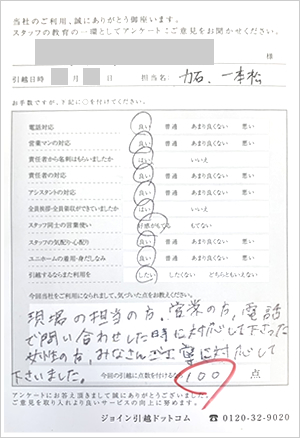 当社のご利用、誠にありがとう御座います。
スタッフの教育の一環としてアンケートにご意見をお聞かせください。
様
引越日時 月 日 担当名: 力石、一本松
お手数ですが、下記に○を付けてください。
電話対応 良い 普通 あまり良くない 悪い
営業マンの対応 良い 普通 あまり良くない 悪い
責任者から名刺はもらいましたか はい いいえ
責任者の対応 良い 普通 あまり良くない 悪い
アシスタントの対応 良い 普通 あまり良くない 悪い
全員挨拶・全員集収ができていましたか はい いいえ
スタッフ同士の言葉使い 好感がもてる もてない
スタッフの気配り・心配り 良い 普通 あまり良くない 悪い
ユニホームの着用・身だしなみ 良い 普通 あまり良くない 悪い
引越するならまた利用を したい したくない どちらともいえない
今回当社をご利用になられまして、気づいた点をお教えください。
現場の担当の方、営業の方、電話
で問い合わせした時に対応して下さった
女性の方、みなさんご丁寧に対応して
下さいました。
今回の引越に点数を付けけるなら 100 点
アンケートにお答え頂きまして誠にありがとうございます。
ご意見を取り入れより良いサービスの向上に努めます。
ジョイン引越ドットコム ☎0120-32-9020